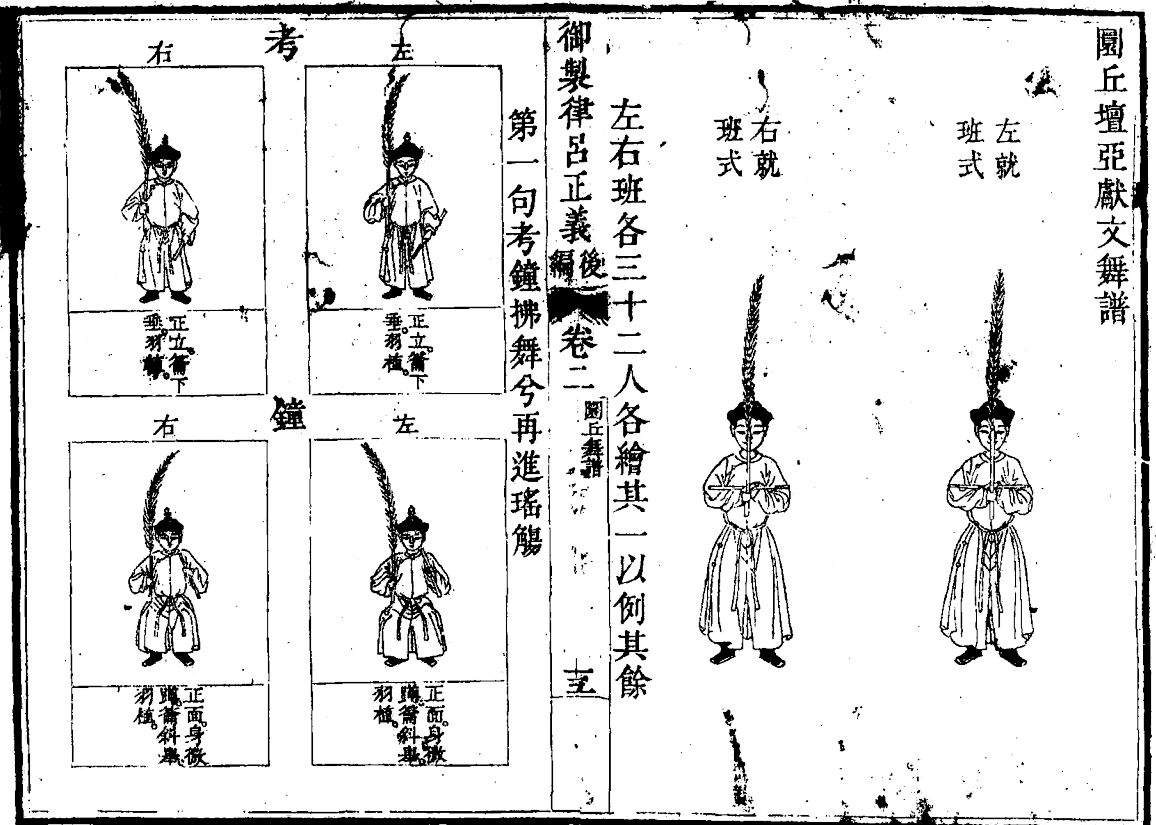 圜丘壇亞獻文舞譜
左就
班式
右就
班式
左右班各三十二人各繪其一以例其餘
御製律呂正義後編 卷二 圜丘舞譜
第一句考鐘拂舞兮再進瑤觴
考
左
正立。籥下
垂。羽植。
右
正立。籥下
垂。羽植。
鐘
左
正面。身微
蹲。籥斜舉。
羽植。
右
正面。身微
蹲。籥斜舉。
羽植。